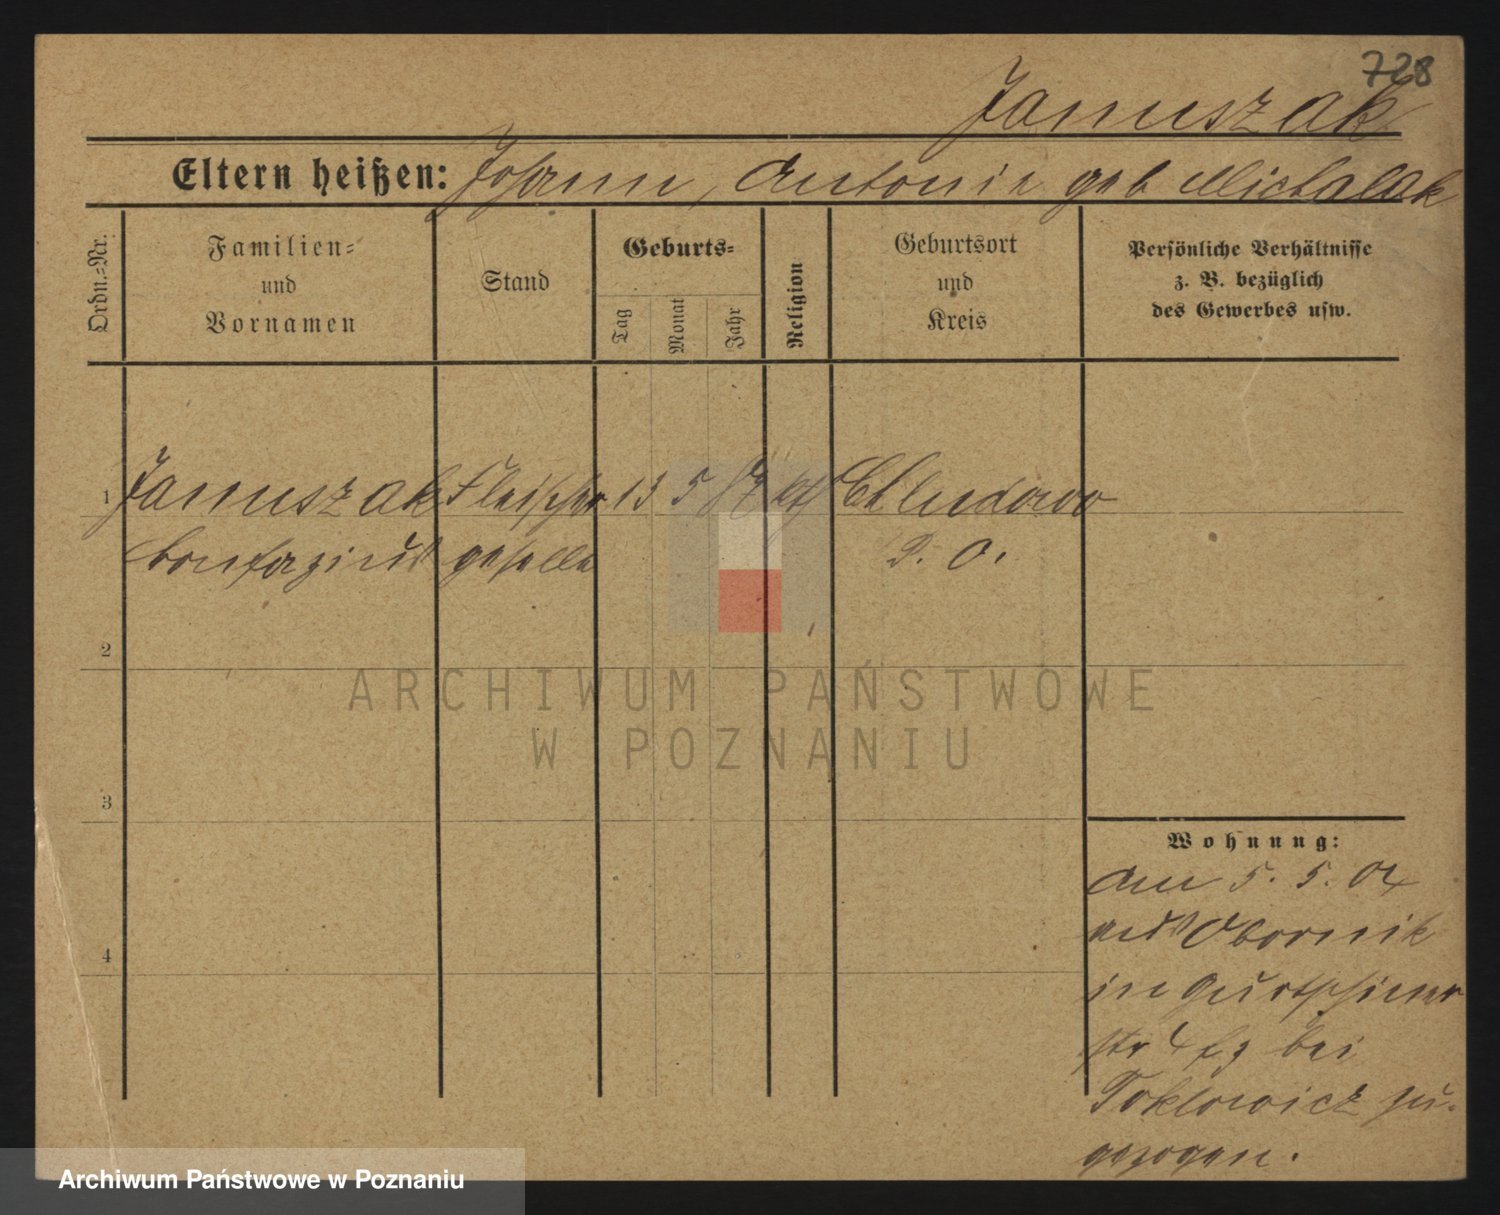 728
Januszak
Eltern heißen: Johann, Antonie geb Michalak
Ordn.-Nr.
Familien-
und
Vornamen
Stand
Geburts-
Tag
Monat
Jahr
Religion
Geburtsort
und
Kreis
Persönliche Verhältnisse
z. B. bezüglich
des Gewerbes usw.
1 Januszak Fleischer 13 5 87 kth Chludowo
Bonifazius geselle P. O.
2
3
4
ARCHIWUM PAŃSTWOWE
W POZNANIU
Wohnung:
Am 5. 5. 04
aus Obornik
in Gurtschiner
str 4 bei
zu-
gezogen.
Archiwum Państwowe w Poznaniu